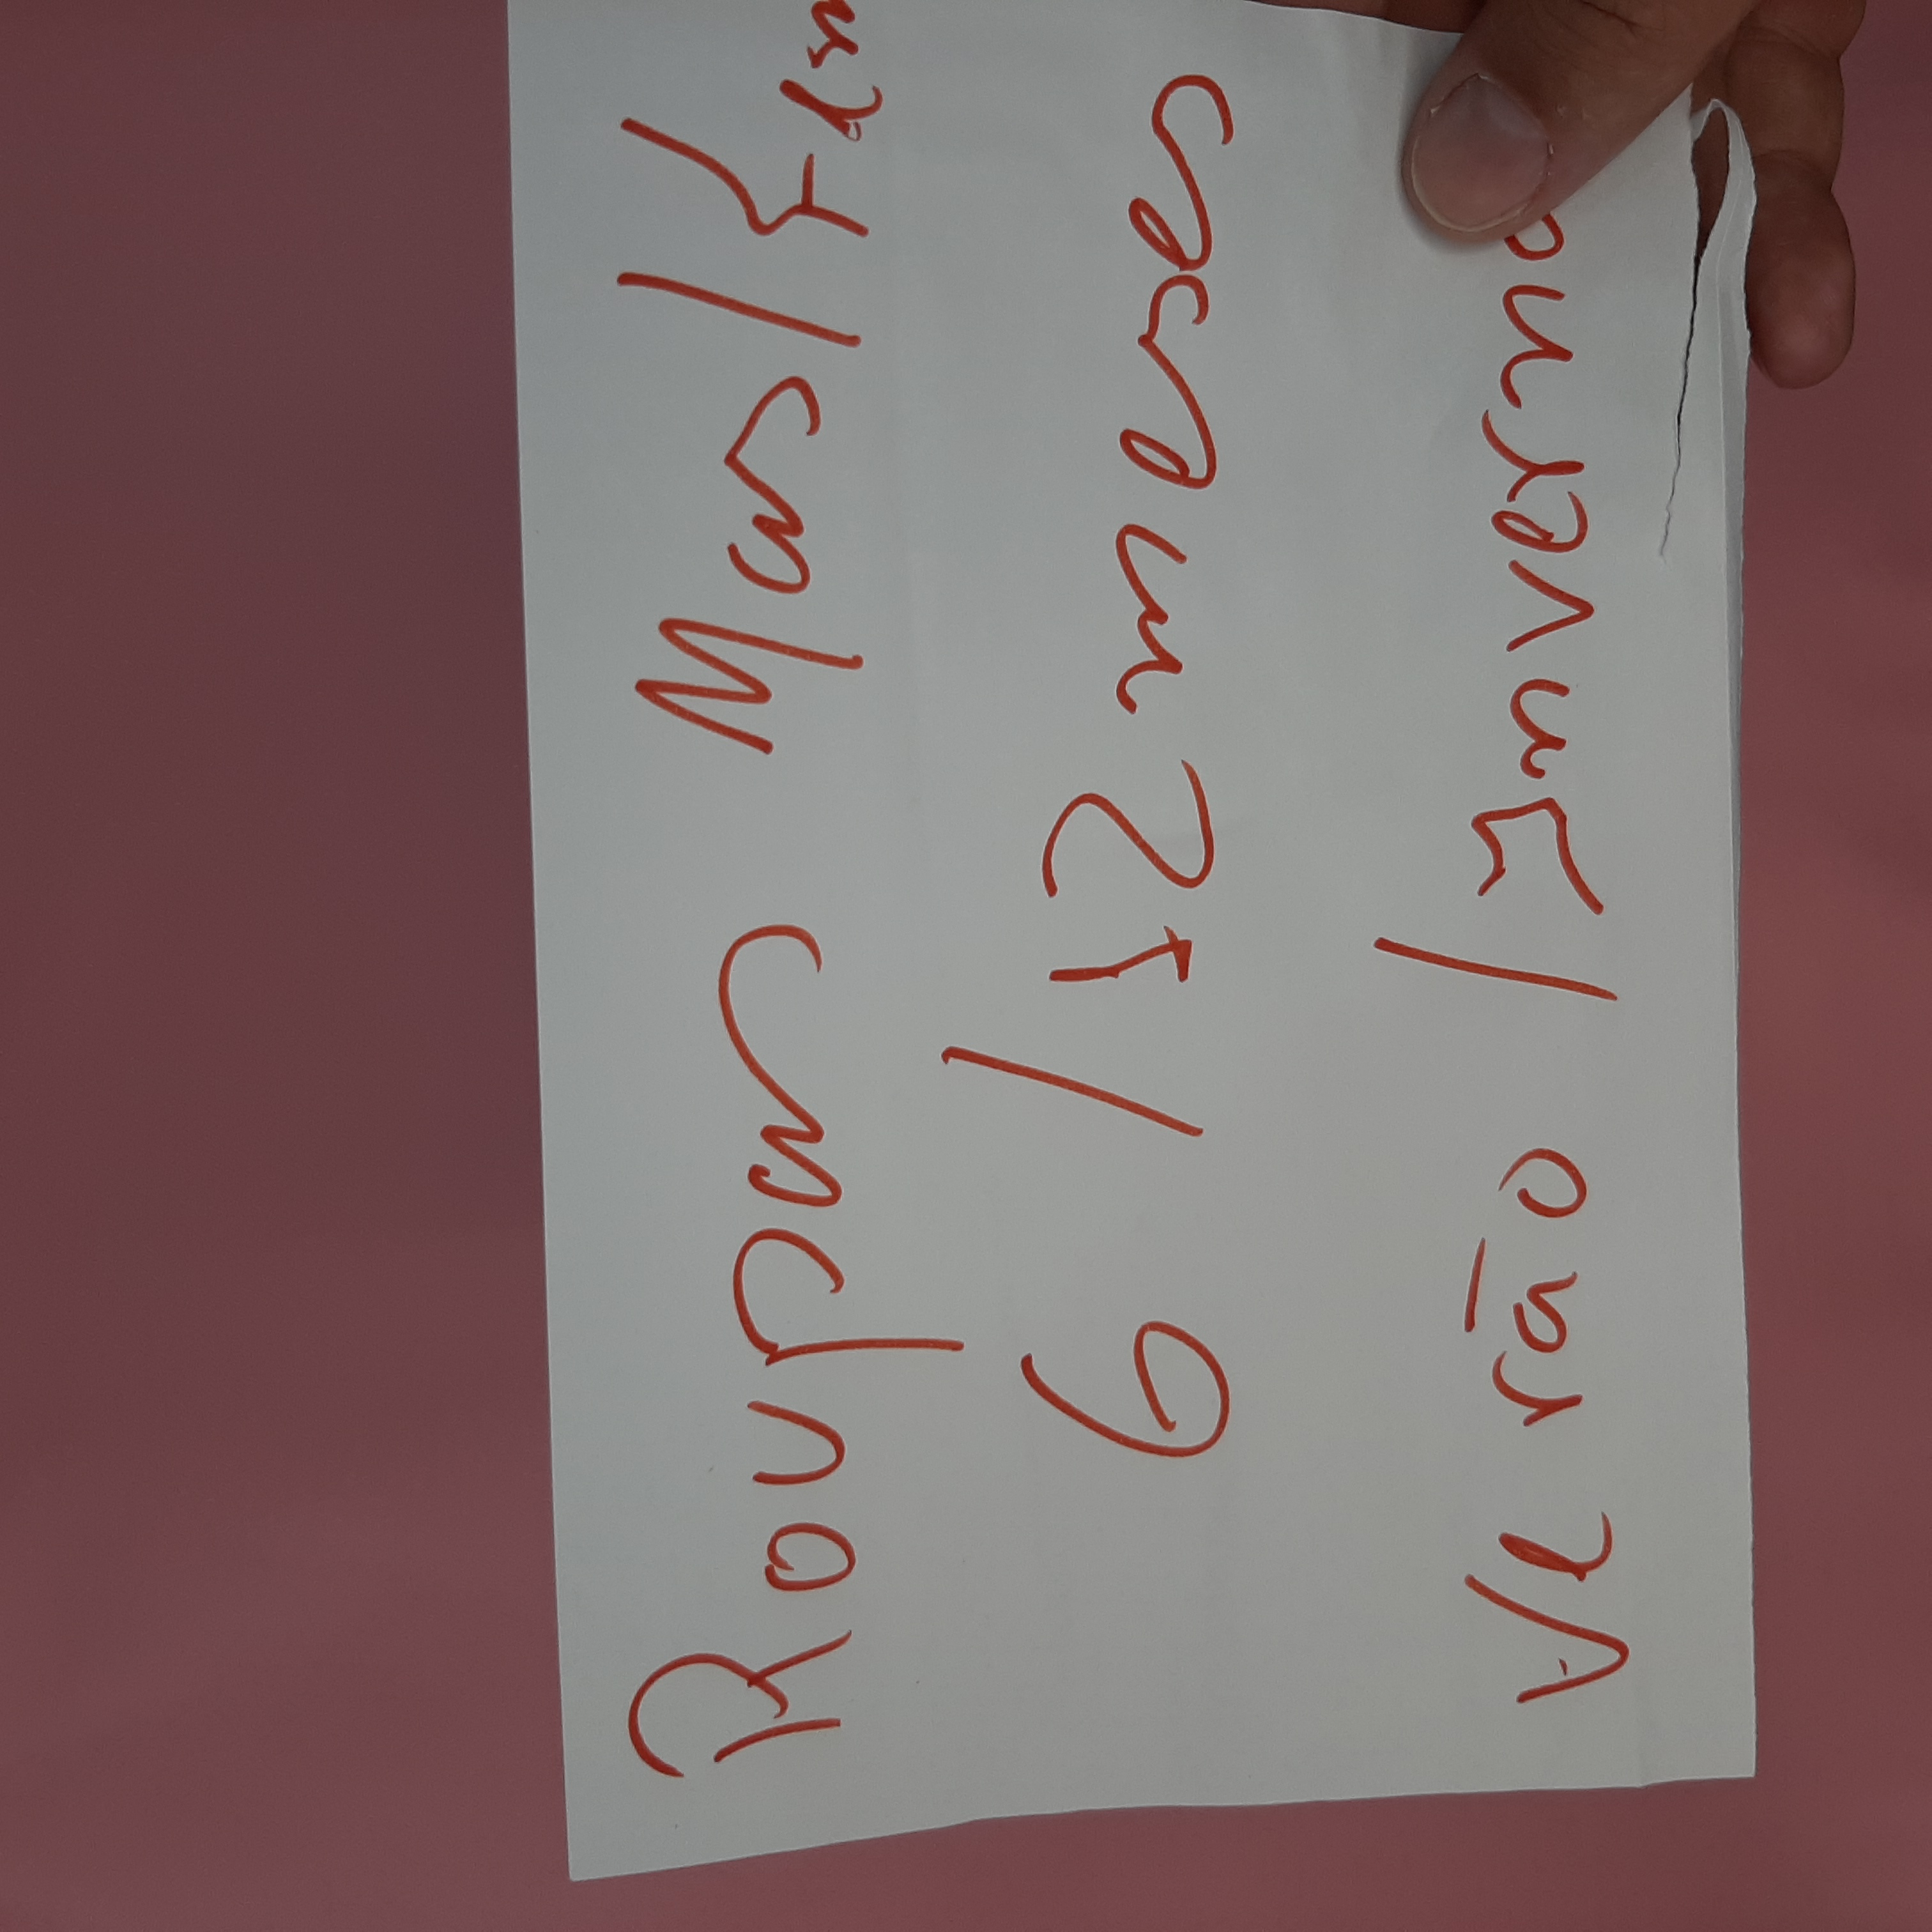 Roupas Mas/Fem
6/12 meses
Verão/Inverno